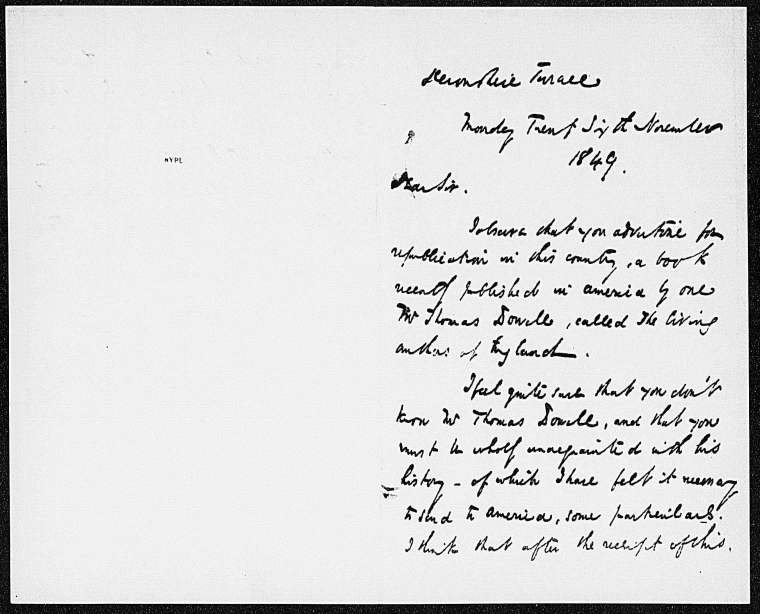 Devonshire Terrace
Monday Twenty Sixth November
1849.
NYPL
Dear Sir.
I observe that you advertise for
republication in this country, a book
recently published in America by one
Mr Thomas Powell, called The living
authors of England.
I feel quite sure that you don't
know Mr Thomas Powell, and that you
must be wholly unacquainted with his
history – of which I have felt it necessary
to send to America, some particulars.
I think that after the receipt of this.